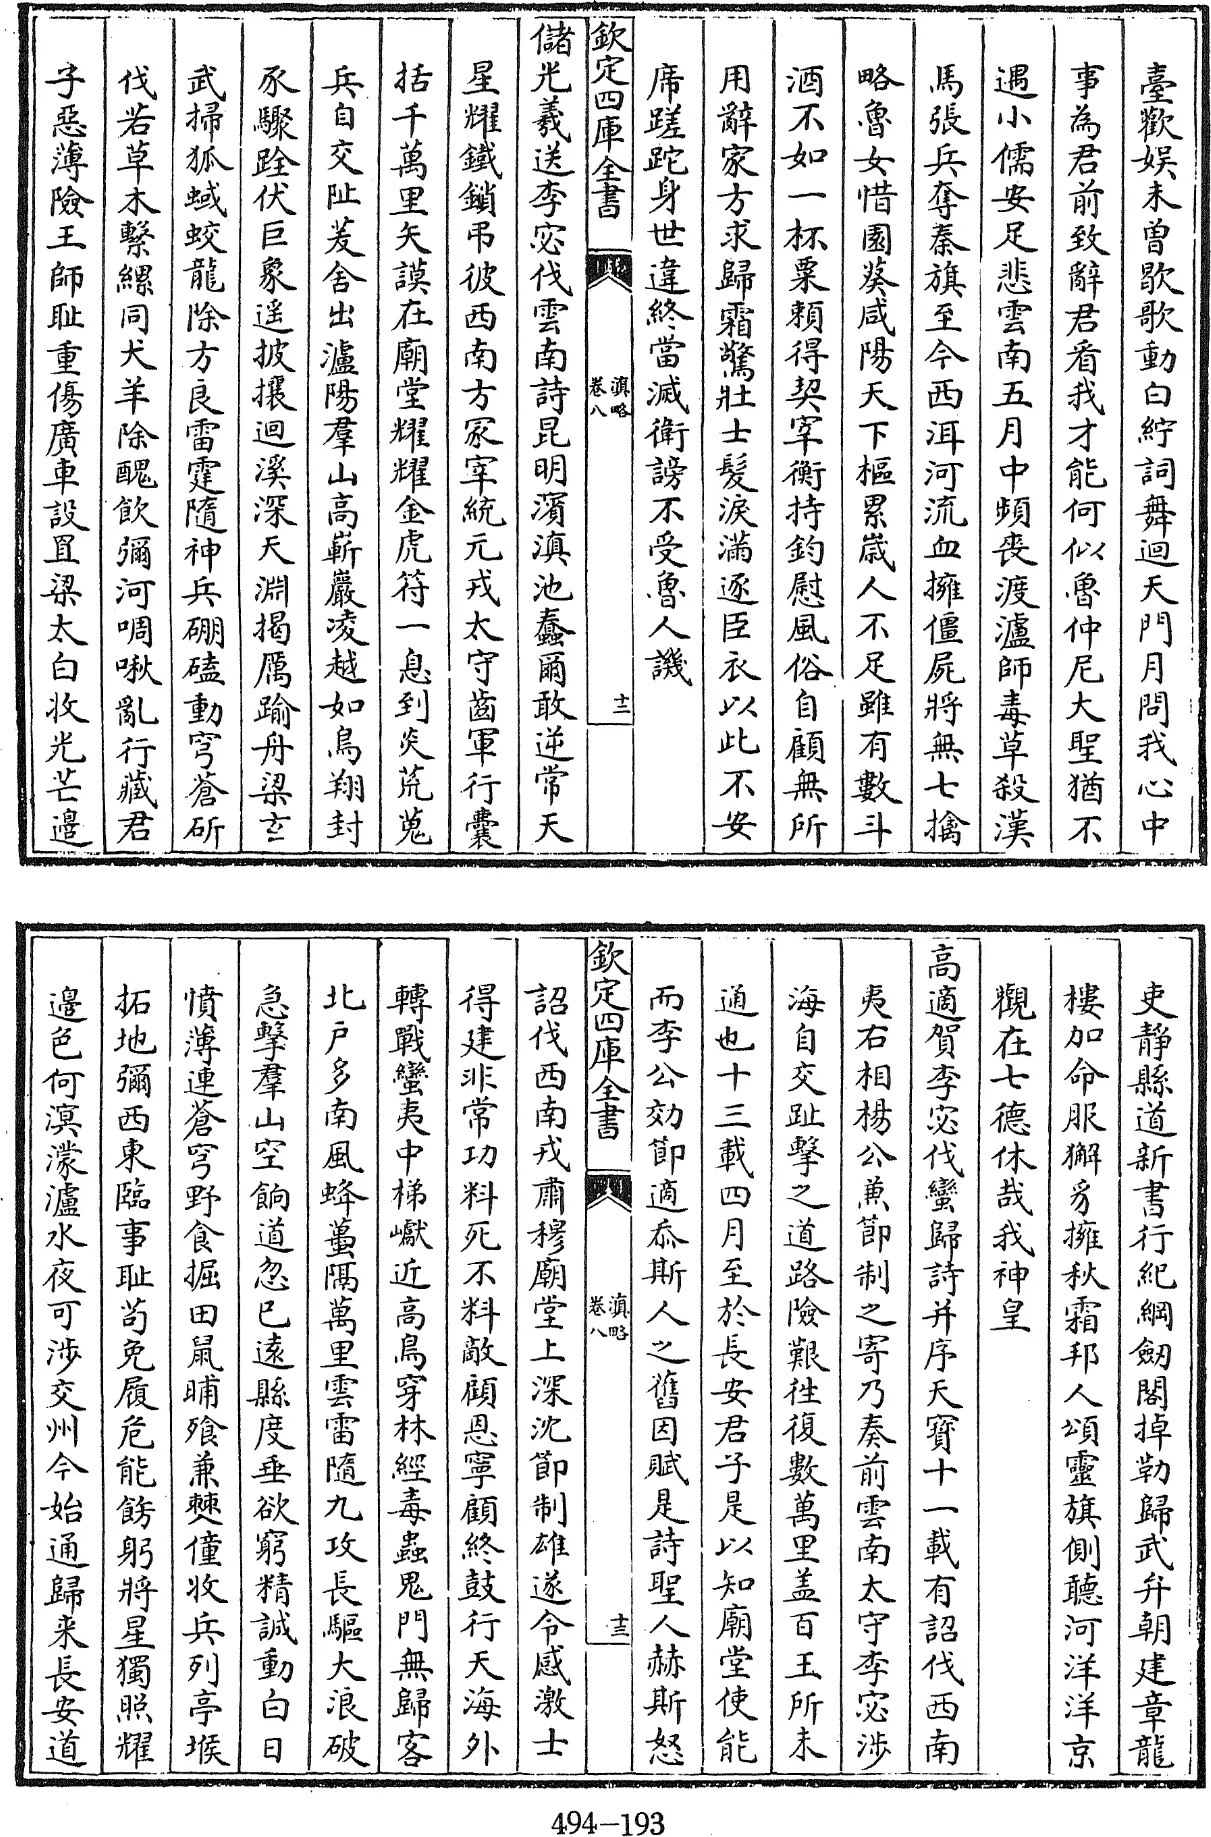 臺歡娱未曾歇歌動白紵詞舞迴天門月問我心中
事為君前致辭君看我才能何似魯仲尼大聖猶不
遇小儒安足悲雲南五月中頻喪渡瀘師毒草殺漢
馬張兵奪秦旗至今西洱河流血擁僵屍將無七擒
略魯女惜園葵咸陽天下樞累嵗人不足雖有數斗
酒不如一杯粟頼得契宰衡持鈞慰風俗自顧無所
用辭家方求歸霜驚壯士髮淚滿逐臣衣以此不安
席蹉跎身世違終當滅衛謗不受魯人譏
欽定四庫全書
滇略
卷八
十二
儲光羲送李宓伐雲南詩昆明濱滇池蠢爾敢逆常天
星耀鐵鎖弔彼西南方冢宰統元戎太守齒軍行囊
括千萬里矢謨在廟堂耀耀金虎符一息到炎荒蒐
兵自交阯茇舍出瀘陽羣山高嶄巖凌越如鳥翔封
豕驟跧伏巨象遥披攘迴溪深天淵揭厲踰舟梁玄
武掃狐蜮蛟龍除方良雷霆隨神兵硼磕動穹蒼斫
伐若草木繫縲同犬羊除醜飲彌河啁啾亂行藏君
子惡薄險王師耻重傷廣車設罝梁太白收光芒邉
吏静縣道新書行紀綱劒閣掉鞅歸武弁朝建章龍
樓加命服獬豸擁秋霜邦人頌靈旗側聽河洋洋京
觀在七德休哉我神皇
高適賀李宓伐蠻歸詩并序天寶十一載有詔伐西南
夷右相楊公兼節制之寄乃奏前雲南太守李宓涉
海自交趾擊之道路險艱徃復數萬里盖百王所未
通也十三載四月至於長安君子是以知廟堂使能
而李公効節適忝斯人之舊因賦是詩聖人赫斯怒
欽定四庫全書
滇略
卷八
十三
詔伐西南戎肅穆廟堂上深沈節制雄遂令感激士
得建非常功料死不料敵顧恩寧顧終鼓行天海外
轉戰蠻夷中梯巘近高鳥穿林經毒蟲鬼門無歸客
北户多南風蜂蠆隔萬里雲雷隨九攻長驅大浪破
急擊羣山空餉道忽已遠縣度垂欲窮精誠動白日
憤薄連蒼穹野食掘田鼠晡飱兼僰僮收兵列亭堠
拓地彌西東臨事耻茍免履危能飭躬將星獨照耀
邉色何溟濛瀘水夜可涉交州今始通歸来長安道
494-193